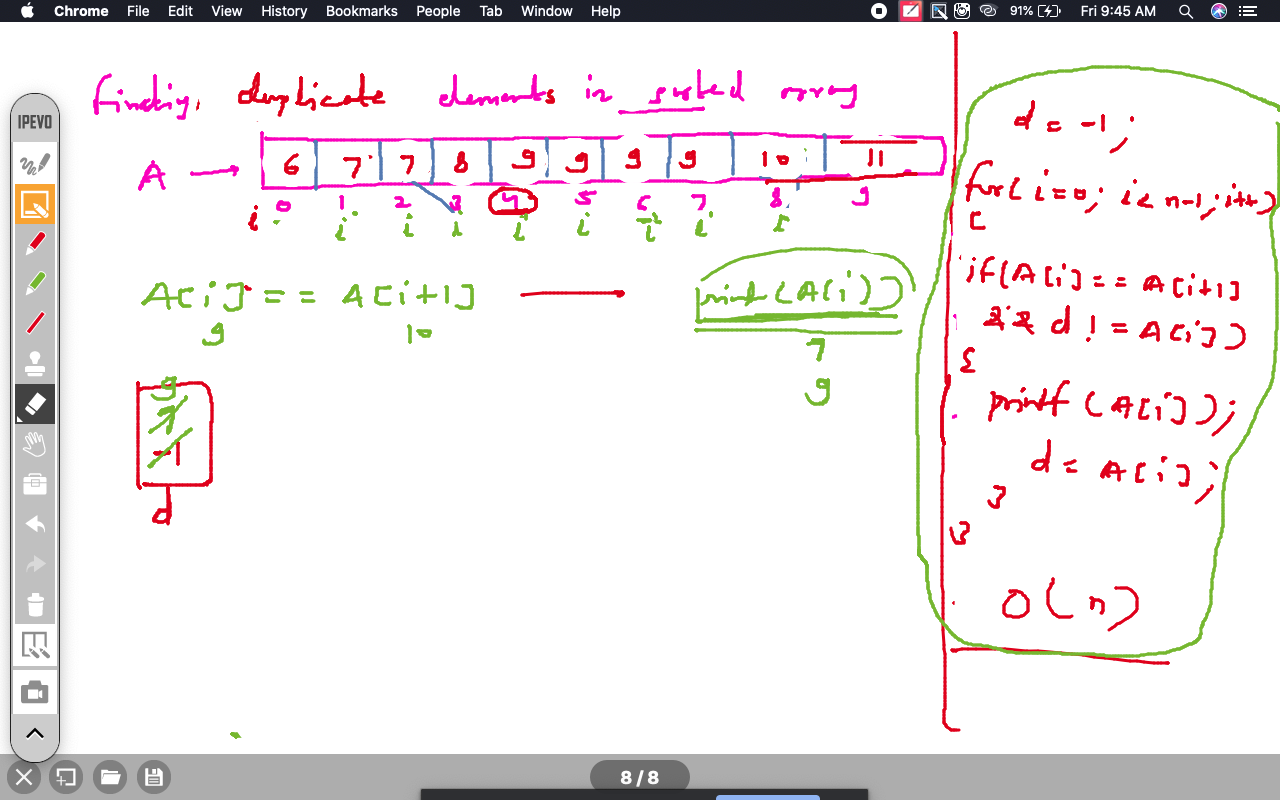 Chrome File Edit View History Bookmarks People Tab Window Help 91% Fri 9:45 AM
IPEVO
Finding duplicate elements in sorted array
A → 6 7 7 8 9 9 9 9 10 11
i 0 1 2 3 4 5 6 7 8 9
i i i i i i i i
A[i] == A[i+1] print(A[i])
9 10 7
9
9
7
-1
d
d = -1;
for(i=0; i<n-1; i++)
{
if(A[i] == A[i+1]
&& d != A[i])
{
printf(A[i]);
d = A[i];
}
}
O(n)
8/8